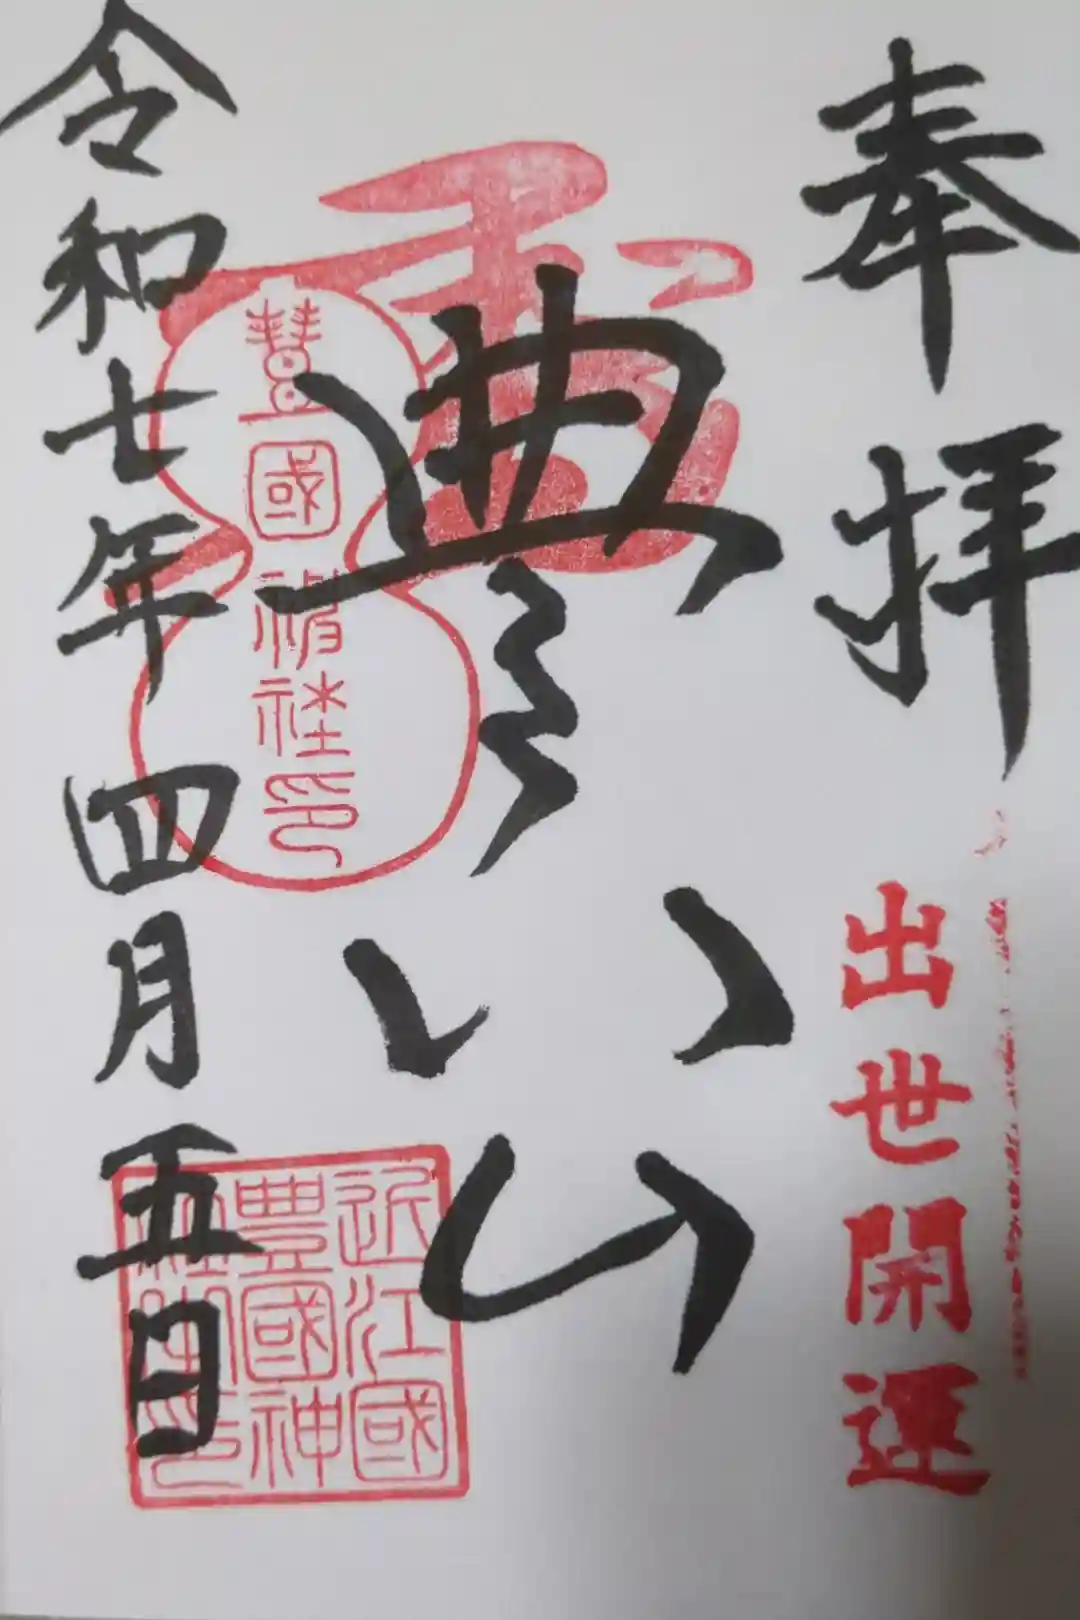 奉拝
出世開運
豊公山
豊國神社印
近江國
豊國神
令和七年四月五日